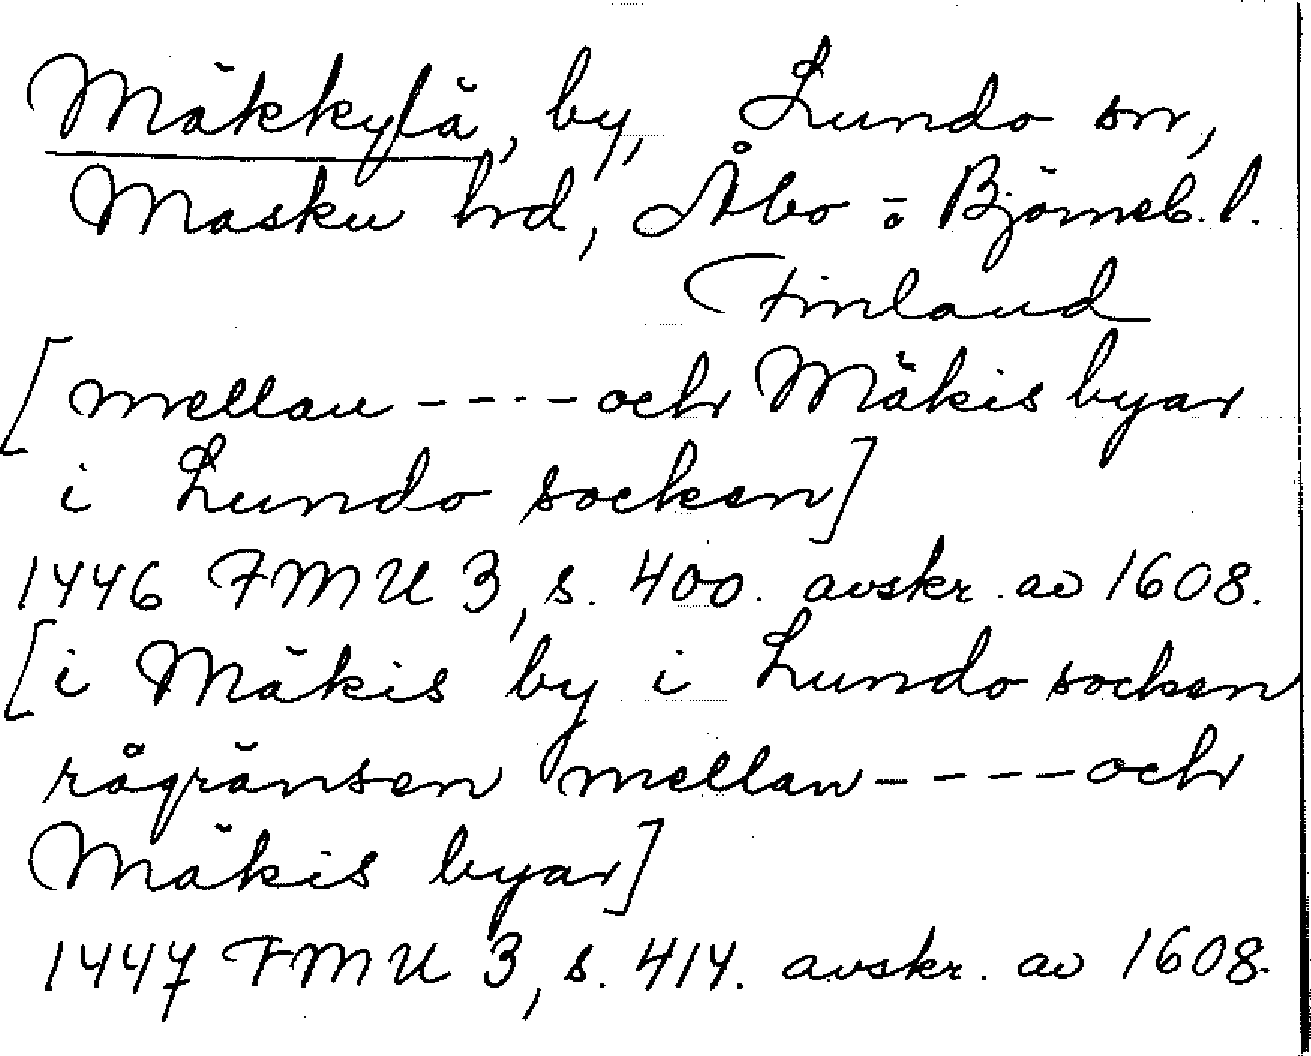 Mäkkylä, by, Lundo sn,
Masku hrd, Åbo o. Björneb. l.
Finland
[mellan - - - - och Mäkis byar
i Lundo socken]
1446 FMU 3, s. 400. avskr. av 1608.
[i Mäkis by i Lundo socken
rågränsen mellan - - - - och
Mäkis byar]
1447 FMU 3, s. 414. avskr. av 1608.